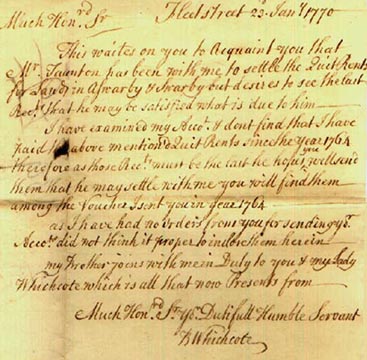 Fleetstreet 23 Janry 1770
Much Honrd Sr
This waites on you to Acquaint you that
Mr. Taunton has been with me to settle the Quit Rents
for Land in Aswarby & Swarby but desires to see the last
Rect that he may be satisfied what is due to him
I have examined my Acct. & dont find that I have
paid the above mention'd Quit Rents since the Year 1764
therefore as those Rects must be the last he hopes you will send
them that he may settle with me you will find them
among the Vouchers I sent you in Year 1764
as I have had no orders from you for sending yr.
Acco. did not think it proper to inclose them herein
my Brother joins with me in Duty to you & my Lady
Whichcote which is all that now Presents from
Much Honrd Sr. yr. Dutifull Humble Servant
Whichcote